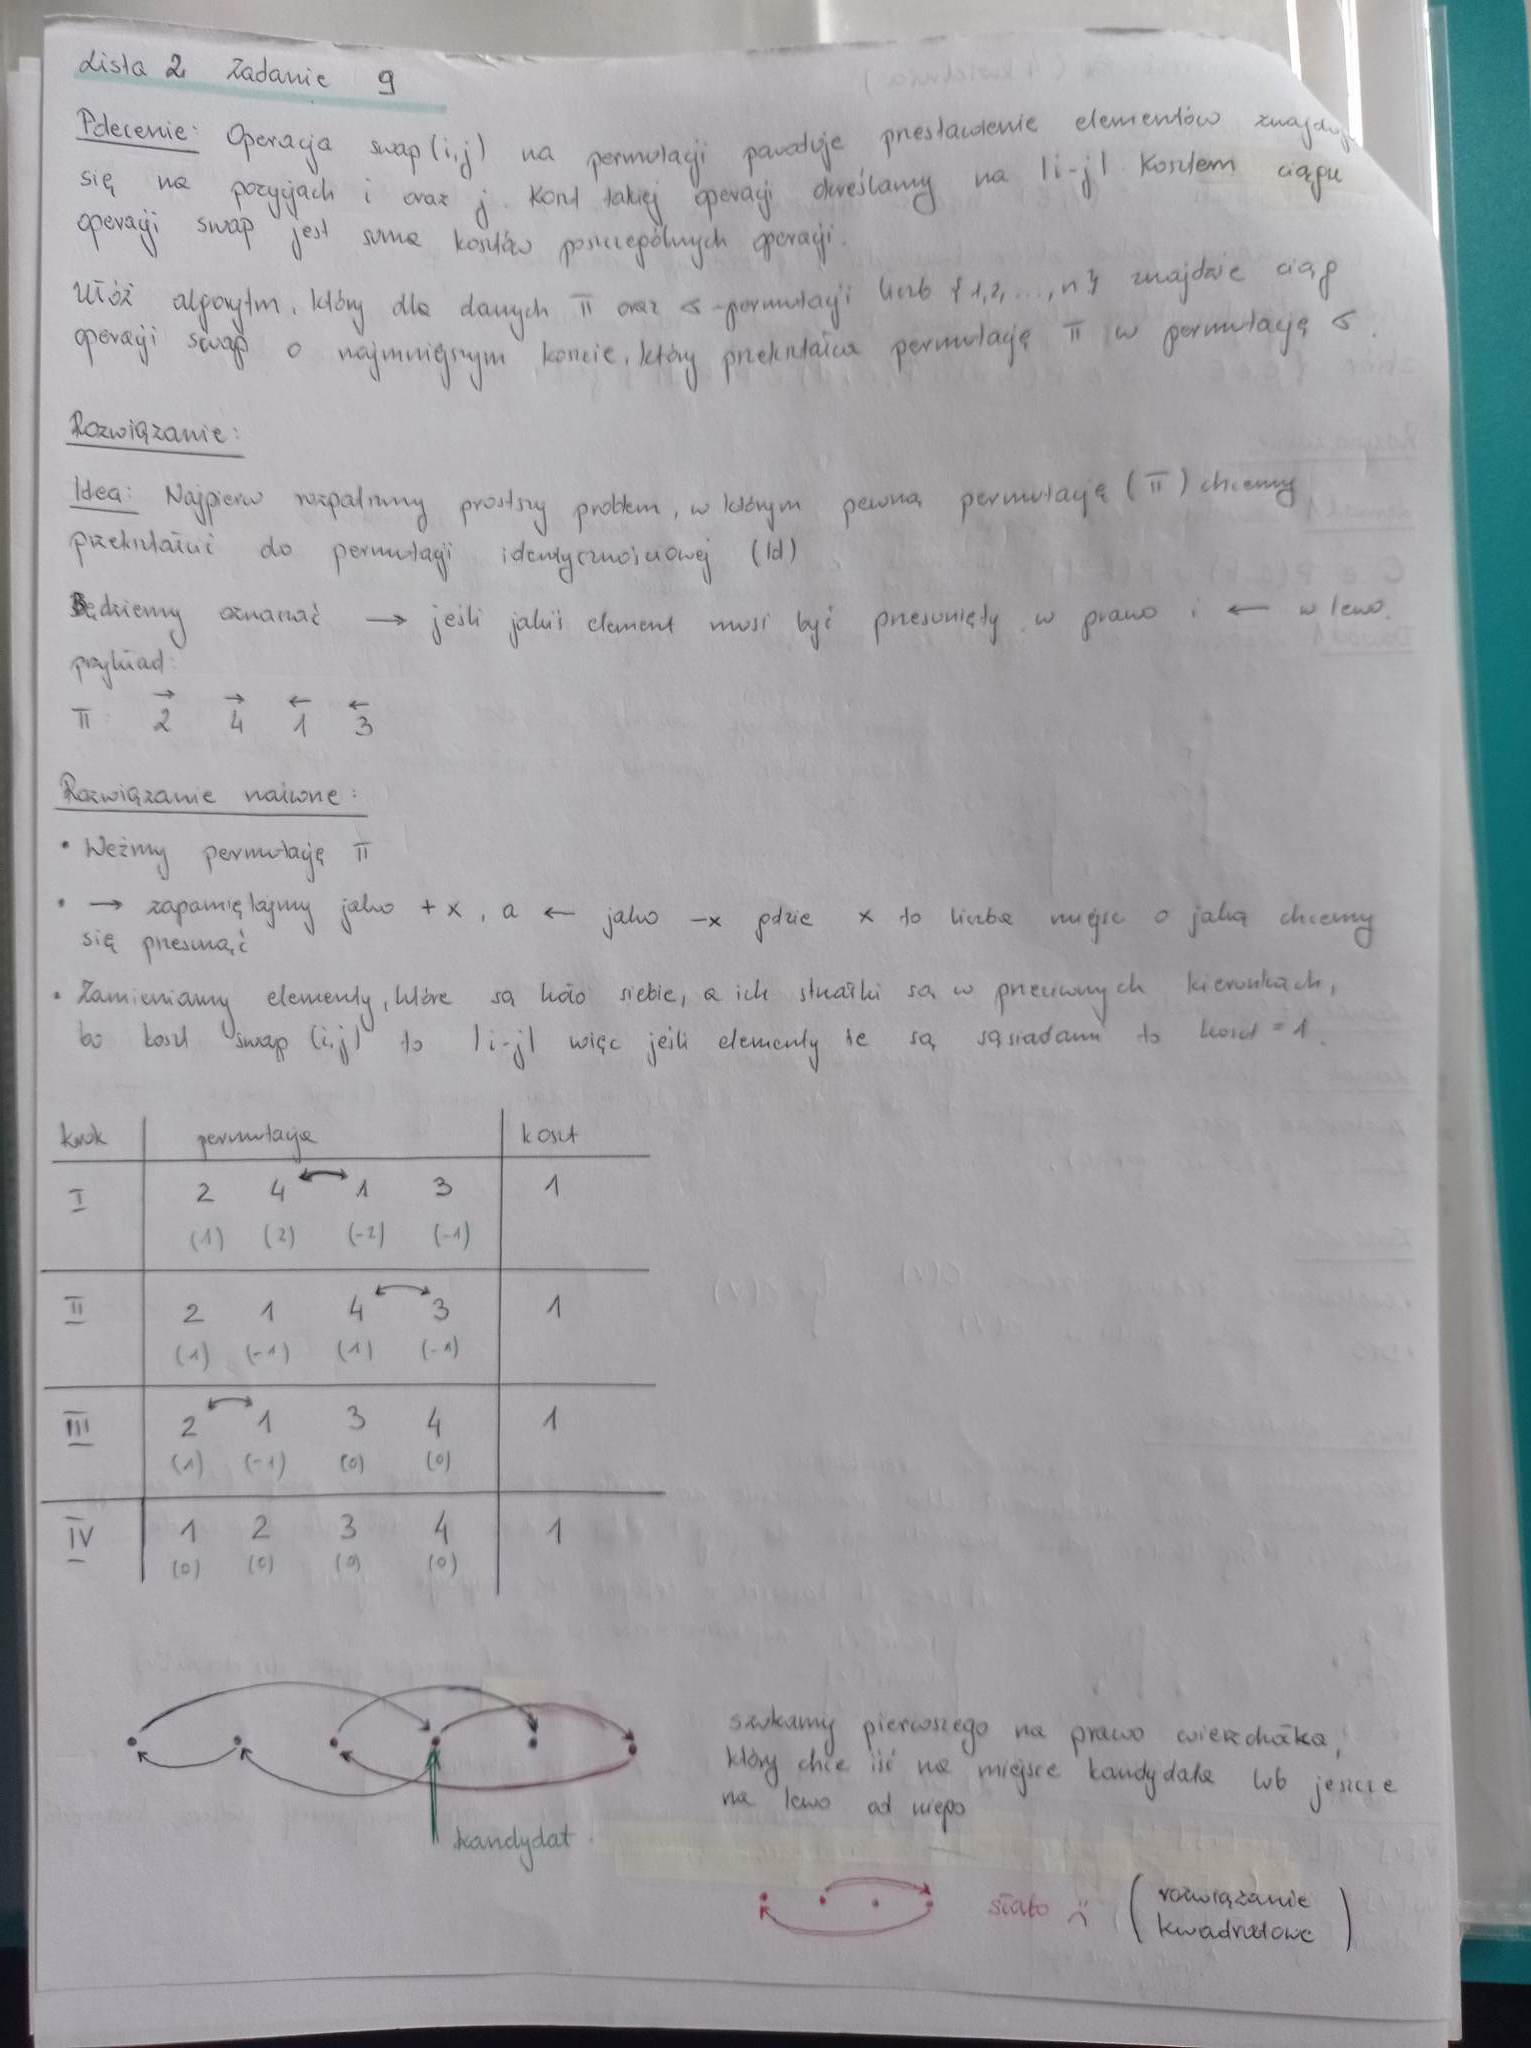 Lista 2 Zadanie 9
Polecenie: Operacja swap (i,j) na permutacji powoduje przestawienie elementów
się na pozycjach i oraz j. Koszt takiej operacji określamy na |i-j|. Kosztem ciągu
operacji swap jest suma kosztów poszczególnych operacji.
Ułóż algorytm, który dla danych π oraz σ - permutacji liczb {1,2,...,n} znajdzie ciąg
operacji swap o najmniejszym koszcie, który przekształca permutację π w permutację σ.
Rozwiązanie:
Idea: Najpierw rozpatrzmy prostszy problem, w którym pewną permutację (π) chcemy
przekształcić do permutacji identycznościowej (Id)
Będziemy oznaczać → jeśli jakiś element musi być przesunięty w prawo i ← w lewo.
przykład:
→ → ← ←
π: 2 4 1 3
Rozwiązanie naiwne:
• Weźmy permutację π
• → zapamiętajmy jako +x, a ← jako -x gdzie x to liczba miejsc o jaką chcemy
się przesunąć
• Zamieniamy elementy, które są koło siebie, a ich strzałki są w przeciwnych kierunkach,
bo koszt swap (i,j) to |i-j| więc jeśli elementy te są sąsiadami to koszt = 1.
krok permutacja koszt
I 2 4 1 3 1
(1) (2) (-2) (-1)
II 2 1 4 3 1
(1) (-1) (1) (-1)
III 2 1 3 4 1
(1) (-1) (0) (0)
IV 1 2 3 4 1
(0) (0) (0) (0)
szukamy pierwszego na prawo wierzchołka,
który chce iść na miejsce kandydata lub jeszcze
na lewo od niego
kandydat
słabo :( (rozwiązanie
kwadratowe)